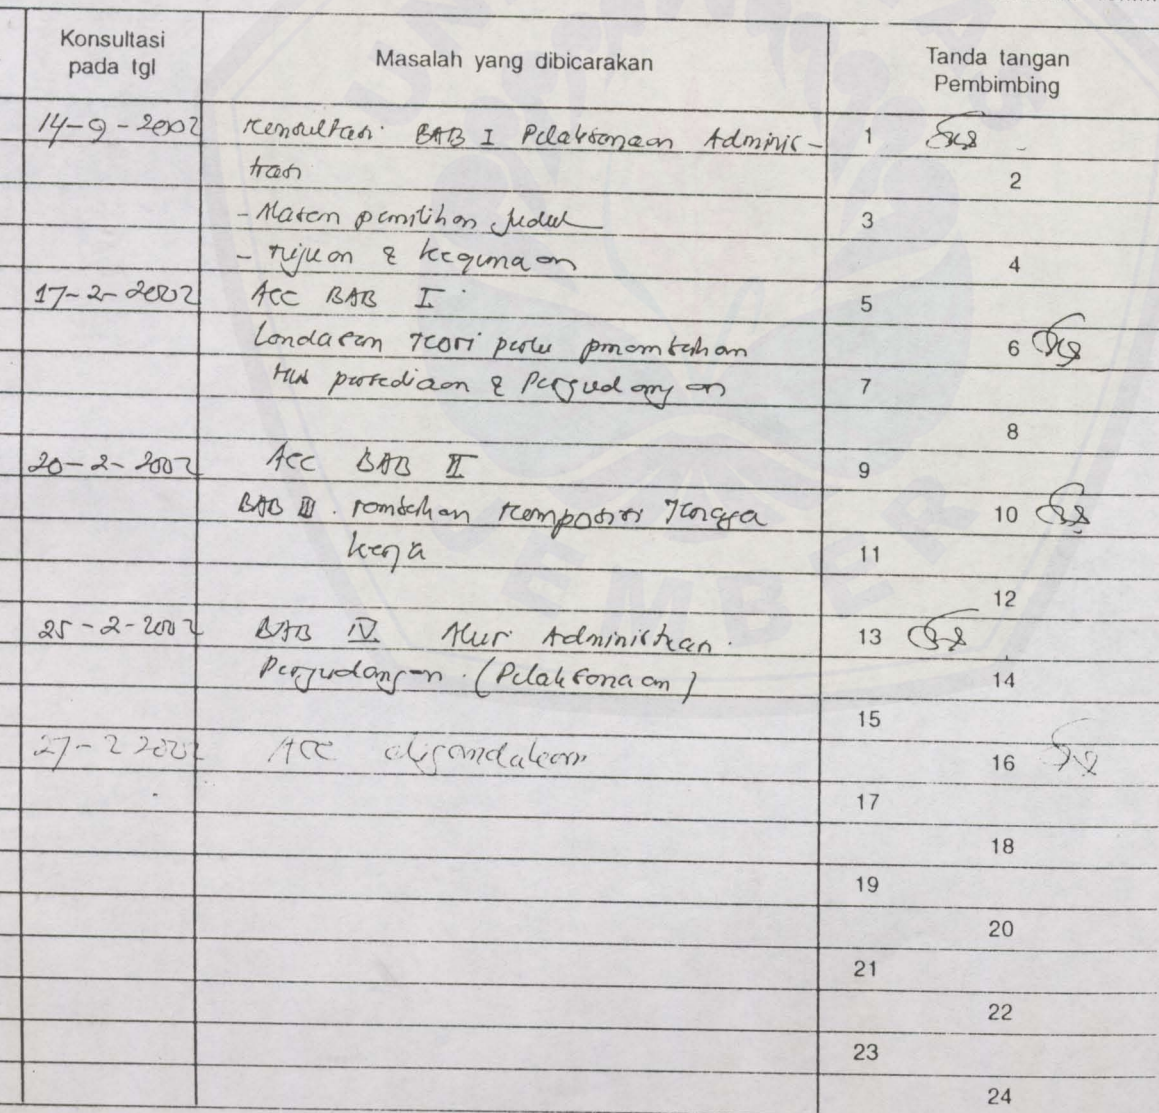 Konsultasi pada tgl
Masalah yang dibicarakan
Tanda tangan Pembimbing
14-9-2002 Konsultasi BAB I Pelaksanaan Adminis- 1
trasi 2
- Alasan pemilihan judul 3
- Tujuan & kegunaan 4
17-2-2002 Acc BAB I 5
Landasan Teori perlu penambahan 6
persediaan & Pergudangan 7
8
20-2-2002 Acc BAB II 9
BAB III. Tambahan Komposisi Tenaga 10
kerja 11
12
25-2-2002 BAB IV Alur Administrasi 13
Pergudangan. (Pelaksanaan) 14
15
27-2 2002 Acc digandakan 16
17
18
19
20
21
22
23
24
JEMBER